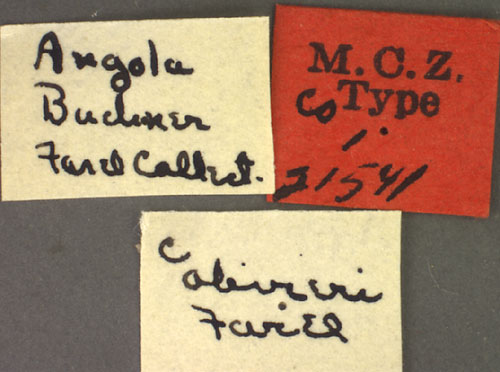 Angola
Buchner
Forel Collect.
M.C.Z.
Co Type
1.
21541
C
olivieri
Forel